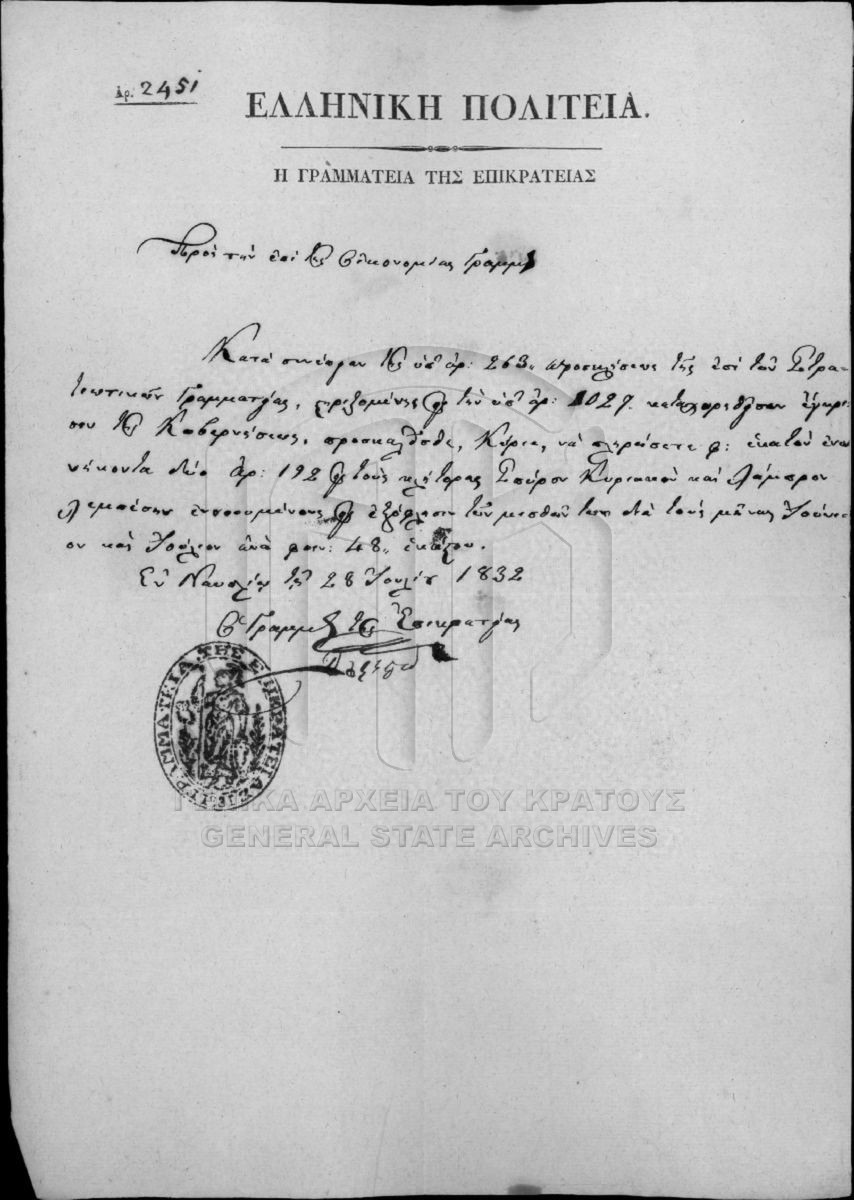 Ἀρ. 2451
ΕΛΛΗΝΙΚΗ ΠΟΛΙΤΕΙΑ.
Η ΓΡΑΜΜΑΤΕΙΑ ΤΗΣ ΕΠΙΚΡΑΤΕΙΑΣ
Πρὸς τὴν ἐπὶ τῆς Οἰκονομίας Γραμμ
Κατὰ συνέπειαν τῆς ὑπ' ἀρ: 263 προσκλήσεως τῆς ἐπὶ τῶν Στρα-
τιωτικῶν Γραμματείας, τὴν ὑπ' ἀρ: 1027
τῆς Κυβερνήσεως, προσκαλεῖσθε, Κύριε, νὰ πληρώσετε φ: ἑκατὸν ἐνεν
νήκοντα δύο ἀρ: 192 τοὺς κλήτορας Σπύρον Κυριακοῦ καὶ Λάμπρον
τῶν μισθῶν των διὰ τοὺς μῆνας Ἰούνι-
ον καὶ Ἰούλιον ἀνὰ φοιν: 48 ἑκάστου.
Ἐν Ναυπλίῳ τῇ 28 Ἰουλίου 1832
Ὁ Γραμμ τῆς Ἐπικρατείας
ΓΡΑΜΜΑΤΕΙΑ ΤΗΣ ΕΠΙΚΡΑΤΕΙΑΣ
ΓΕΝΙΚΑ ΑΡΧΕΙΑ ΤΟΥ ΚΡΑΤΟΥΣ
GENERAL STATE ARCHIVES